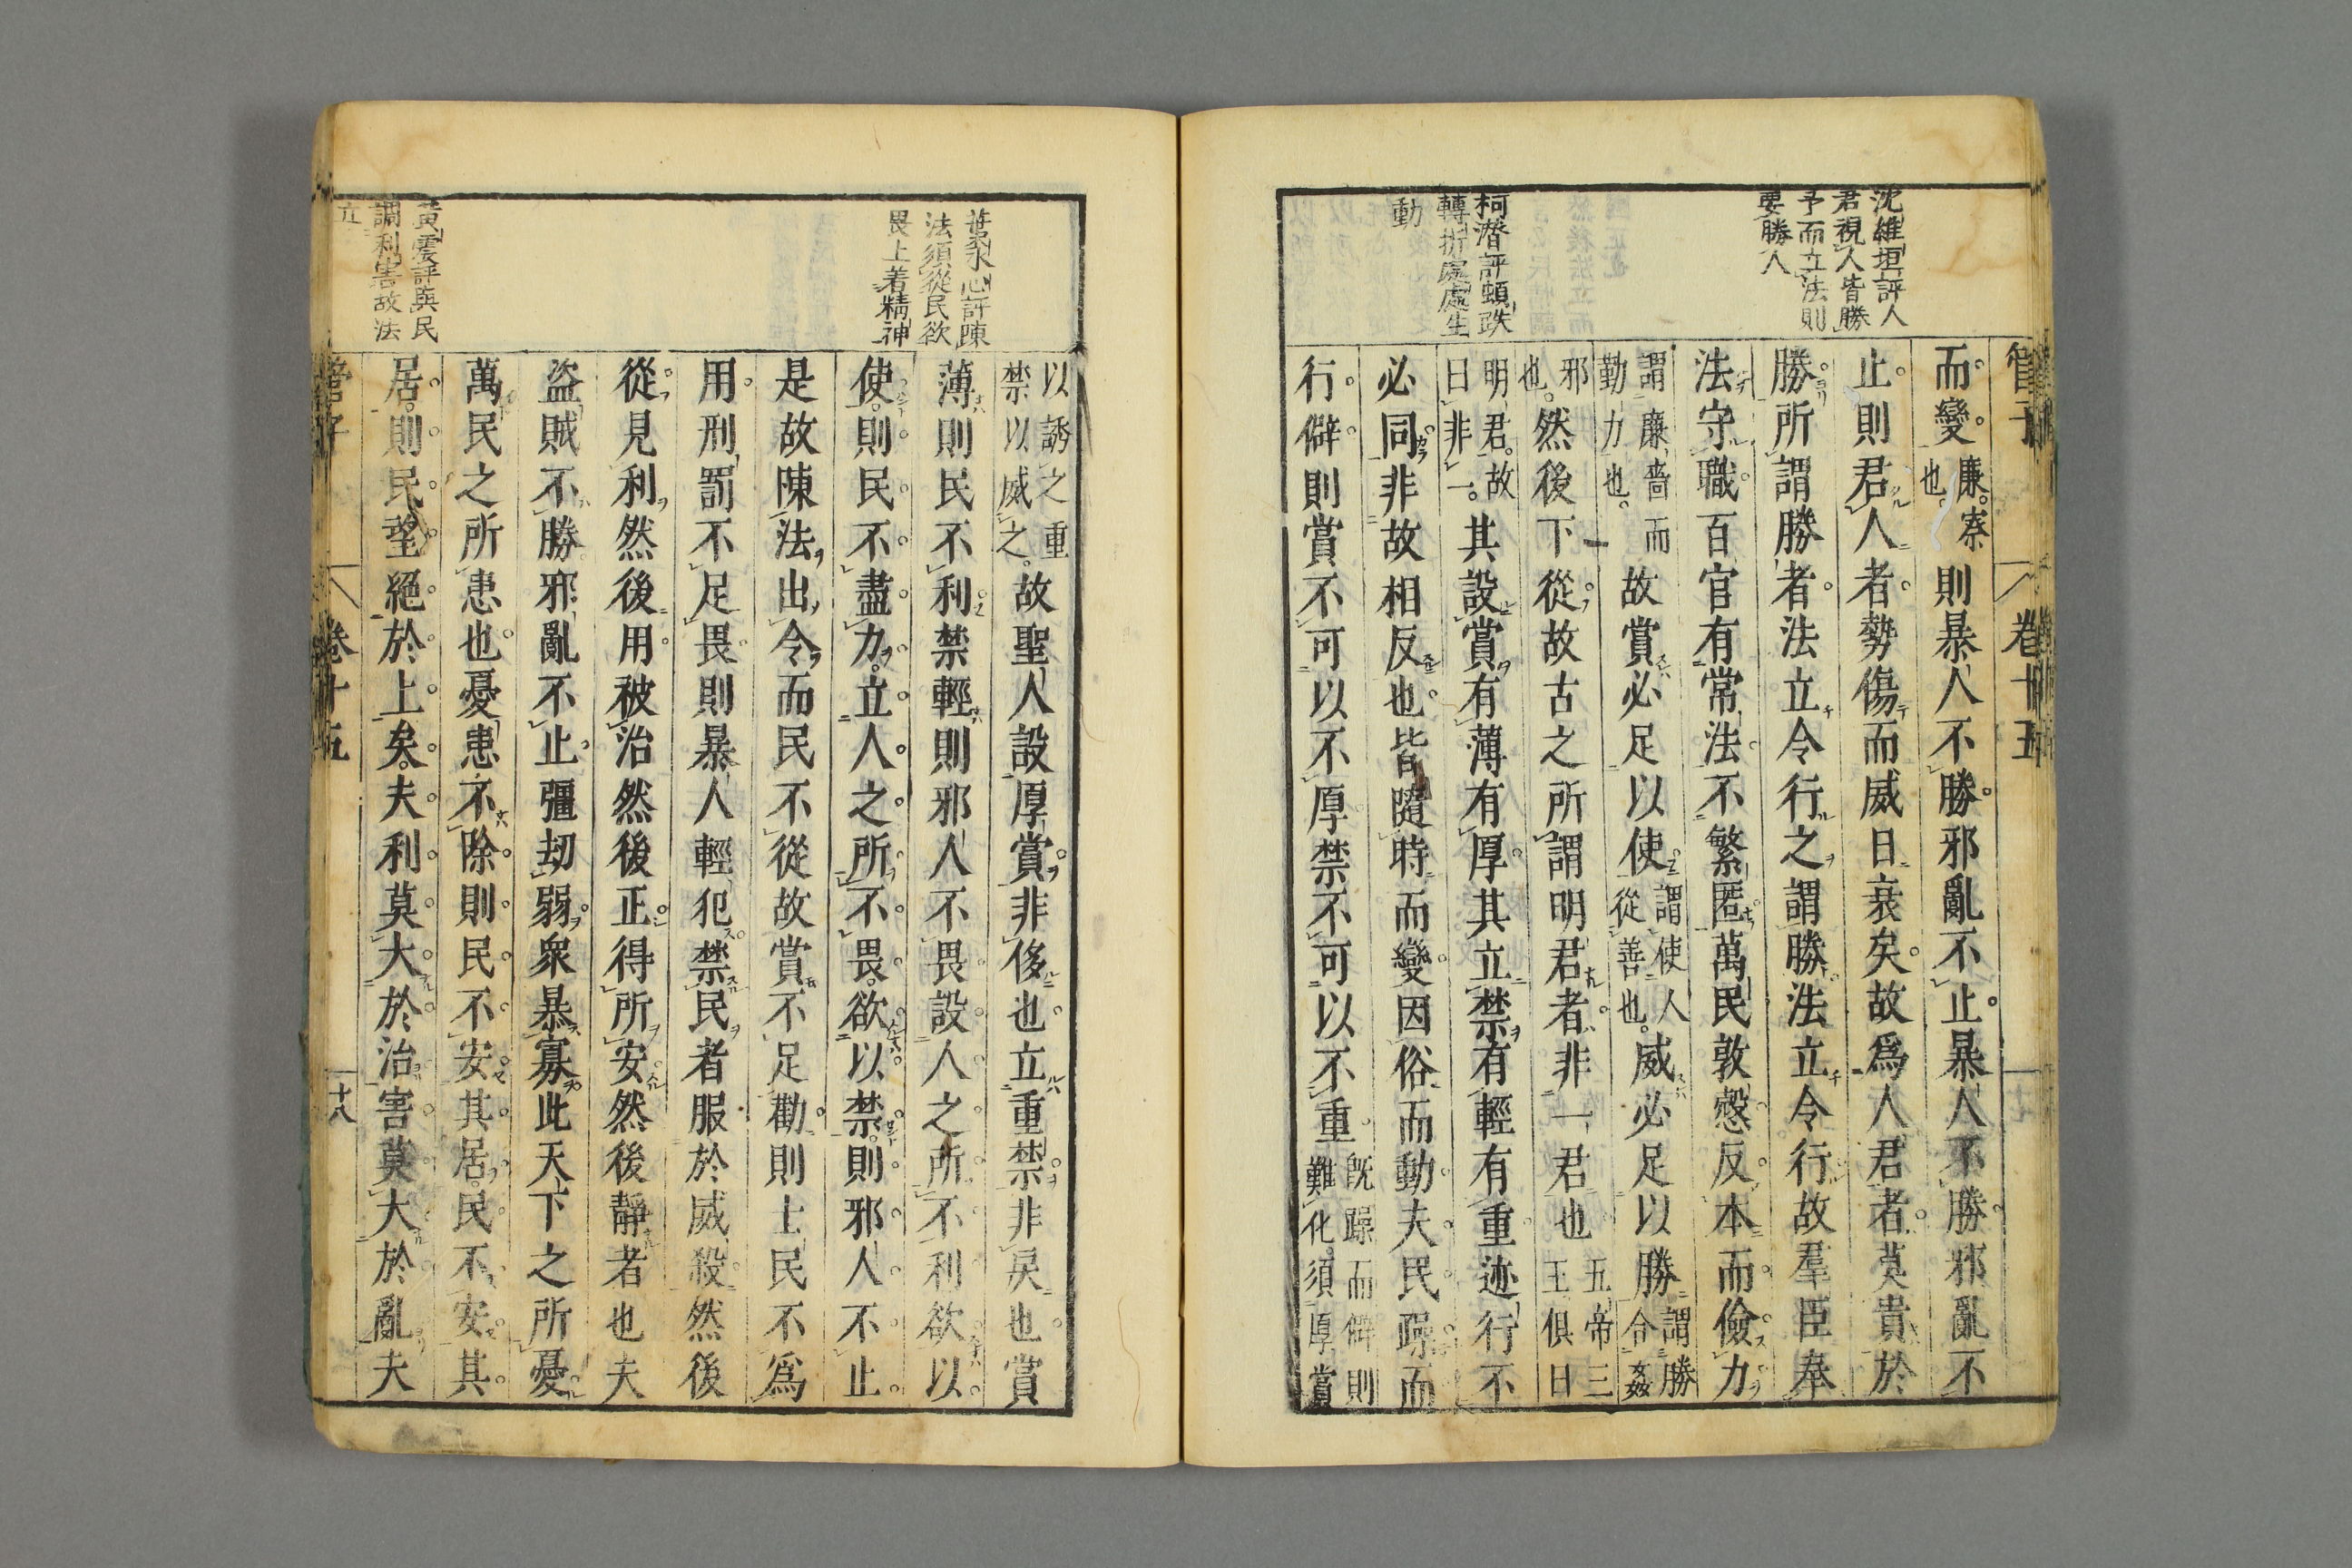 管子
卷十五
十七
沈維垣評人
君視人皆勝
予而立法則
要勝人
柯潛評頓跌
轉折處處生
動
而變廉察也則暴人不勝邪亂不止暴人不勝邪亂不
止則君人者勢傷而威日衰矣故爲人君者莫貴於
勝所謂勝者法立令行之謂勝法立令行故羣臣奉
法守職百官有常法不繁匿萬民敦愨反本而儉力
謂廉嗇而勤力也故賞必足以使謂使人從善也威必足以勝謂勝合姦
邪也然後下從故古之所謂明君者非一君也五帝三王俱曰
明君故曰非一其設賞有薄有厚其立禁有輕有重迹行不
必同非故相反也皆隨時而變因俗而動夫民躁而
行僻則賞不可以不厚禁不可以不重旣躁而僻則難化須厚賞
葉水心評陳
法須從民欲
畏上着精神
黃震評與民
調利害故法
立
以誘之重禁以威之故聖人設厚賞非侈也立重禁非戾也賞
薄則民不利禁輕則邪人不畏設人之所不利欲以
使則民不盡力立人之所不畏欲以禁則邪人不止
是故陳法出令而民不從故賞不足勸則士民不爲
用刑罰不足畏則暴人輕犯禁民者服於威殺然後
從見利然後用被治然後正得所安然後靜者也夫
盜賊不勝邪亂不止彊劫弱衆暴寡此天下之所憂
萬民之所患也憂患不除則民不安其居民不安其
居則民望絕於上矣夫利莫大於治害莫大於亂夫
管子
卷十五
十八